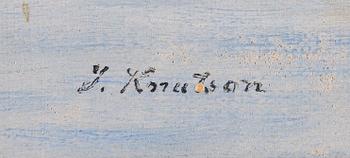 J. Knutson